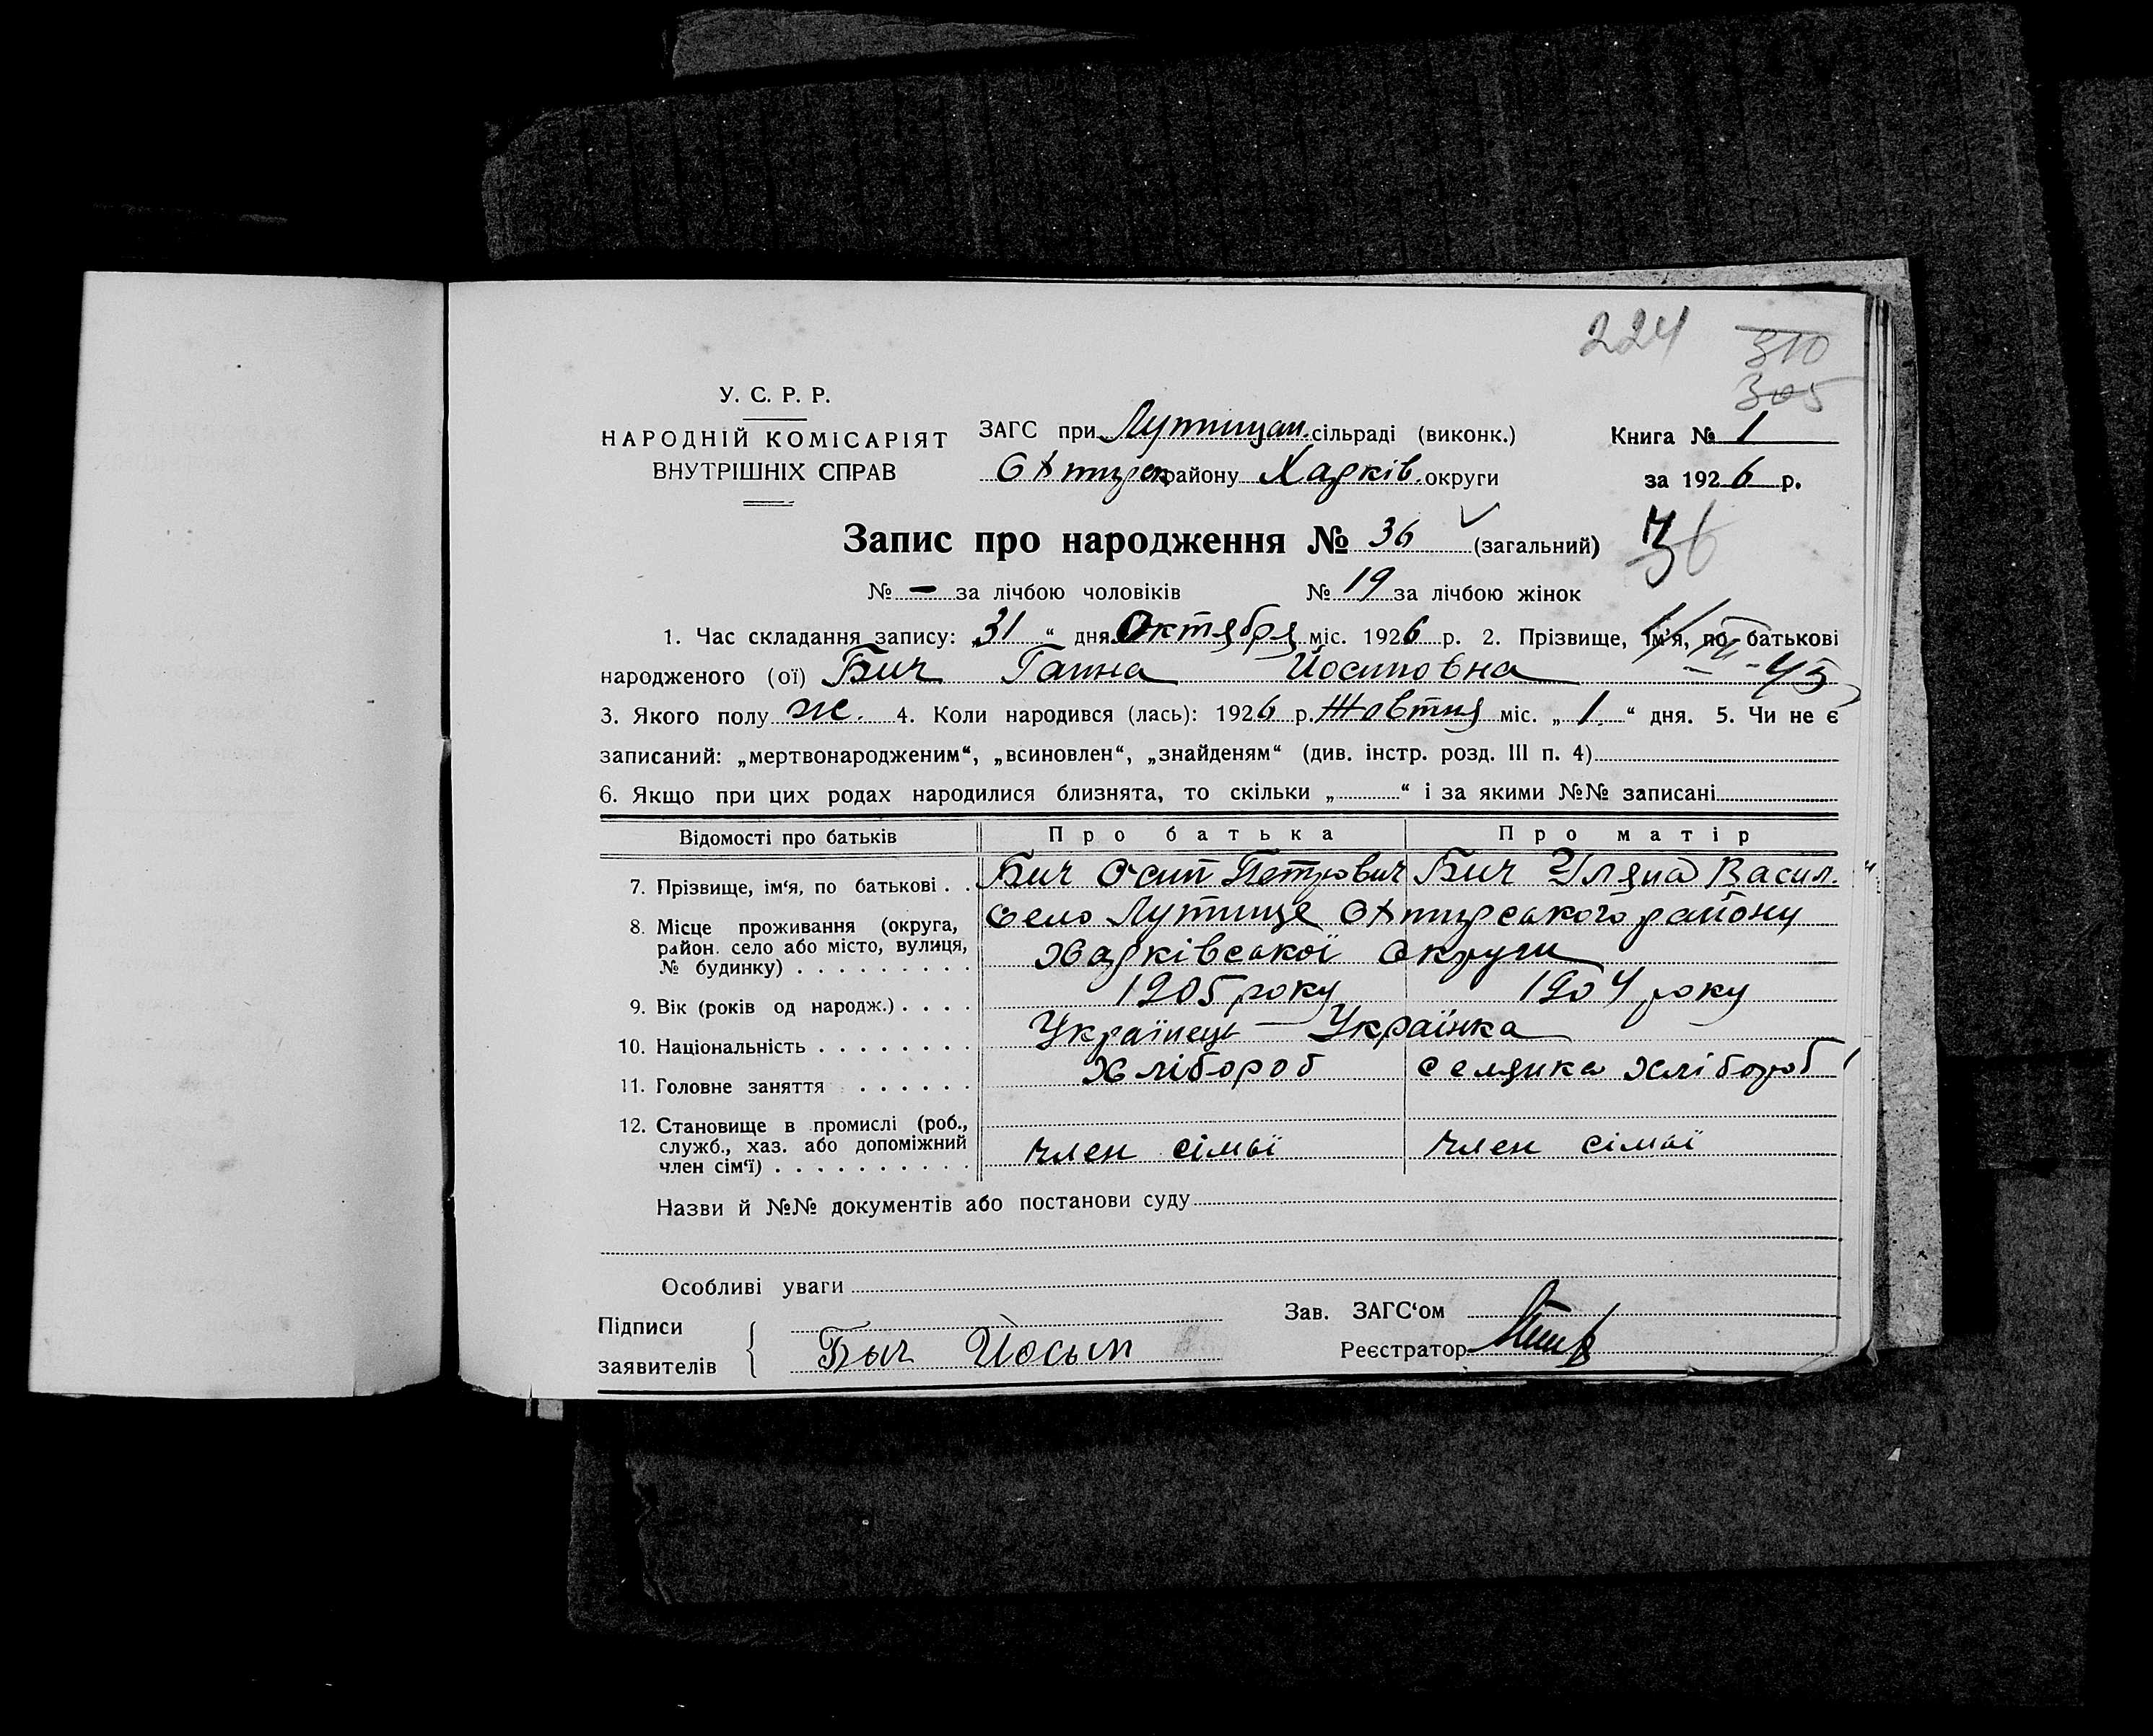 224
310
305
У. С. Р. Р.
НАРОДНІЙ КОМІСАРІЯТ
ВНУТРІШНІХ СПРАВ
ЗАГС при Лутищан. сільраді (виконк.)
Охтирск району Харків. округи
Книга № 1
за 1926 р.
Запис про народження № 36 (загальний)
36
№ — за лічбою чоловіків № 19 за лічбою жінок
1. Час складання запису: 31 “ дня Октября міс. 1926 р. 2. Прізвище, ім'я, по батькові
народженого (ої) Бич Ганна Йосиповна
3. Якого полу ж. 4. Коли народився (лась): 1926 р. Жовтня міс. „ 1 “ дня. 5. Чи не є
записаний: „мертвонародженим“, „всиновлен“, „знайденям“ (див. інстр. розд. III п. 4)
6. Якщо при цих родах народилися близнята, то скільки „ “ і за якими №№ записані
Відомості про батьків Про батька Про матір
7. Прізвище, ім‘я, по батькові . . Бич Осип Петрович Бич Уляна Васил.
8. Місце проживання (округа, район. село або місто, вулиця, № будинку) . . . . . . . . . Село Лутище Охтирського району
Харківської Округи
9. Вік (років од народж.) . . . . 1905 року 1904 року
10. Національність . . . . . . . . Українець — Українка
11. Головне заняття . . . . . . Хлібороб селянка хлібороб
12. Становище в промислі (роб., служб., хаз. або допоміжний член сім‘ї) . . . . . . . . . . член сімьї член сімьї
Назви й №№ документів або постанови суду
Особливі уваги
Підписи
заявителів
Бич Йосып
Зав. ЗАГС‘ом
Реєстратор